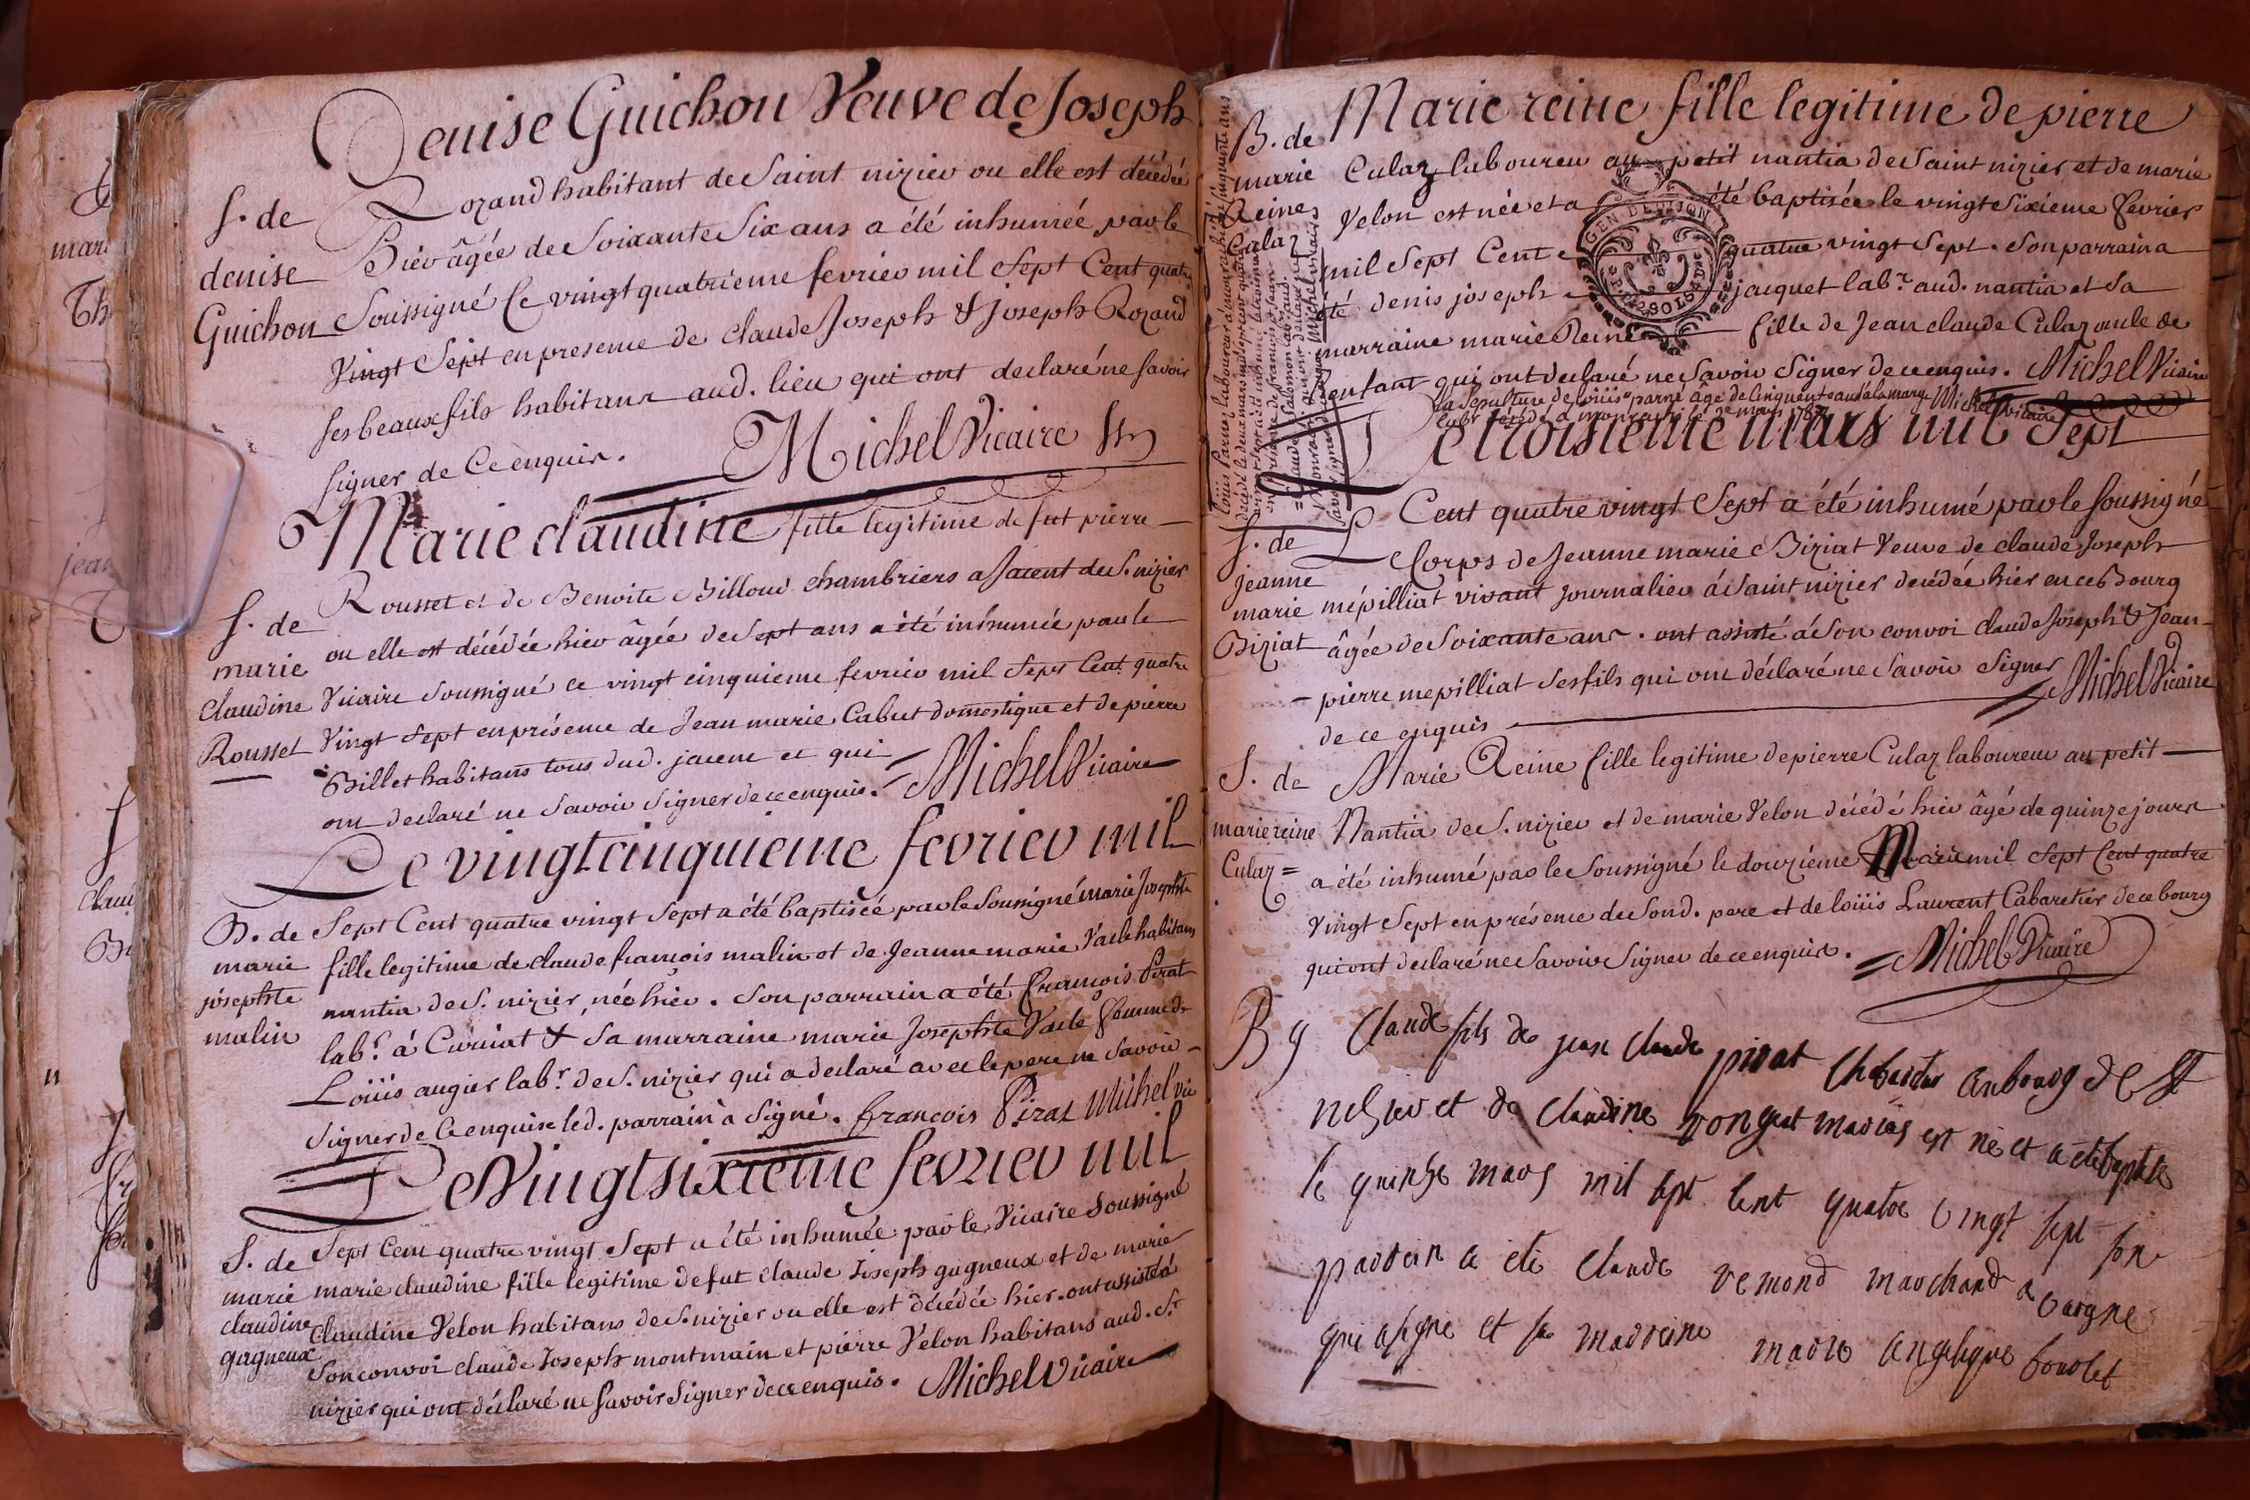 Denise Guichon Veuve de Joseph
Rozand habitant de Saint nizier ou elle est décédée
S. de
denise
Guichon
hier âgée de Soixante Six ans a été inhumée par le
Soussigné Ce vingt quatrième fevrier mil Sept Cent quatre
Vingt Sept en presence de claude Joseph & joseph Rozand
ses beaux fils habitans aud. lieu qui ont declaré ne savoir
signer de Ce enquis.
Michel Vicaire
Marie claudine fille legitime de fut pierre
S. de
marie
claudine
Rousset
Rousset et de Benoite Billoud chambriers a Jacent de S. nizier
ou elle est décédée hier âgée de Sept ans a été inhumée par le
Vicaire soussigné ce vingt cinquieme fevrier mil Sept Cent quatre
Vingt Sept en présence de Jean marie Cabut domestique et de pierre
Billet habitans tous dud. jacent et qui
ont declaré ne Savoir signer de ce enquis. Michel Vicaire
Le vingt cinquieme fevrier mil
B. de
marie
josephte
malin
Sept Cent quatre vingt Sept a été baptisée par le Soussigné marie Josephte
fille legitime de claude françois malin et de Jeanne marie Vacle habitans
nantia de S. nizier, née hier. Son parrain a été François Pirat
lab.r à Curciat & Sa marraine marie Josephte Vacle femme de
Loüis augier lab.r de S. nizier qui a declaré avec le pere ne Savoir
Signer de Ce enquis led. parrain a Signé. francois Pirat Michel vic
Le Vingt sixieme fevrier mil
S. de
marie
claudine
gagneux
Sept Cent quatre vingt Sept a été inhumée par le Vicaire Soussigné
marie claudine fille legitime de fut claude Joseph gagneux et de marie
Claudine Velon habitans de S. nizier ou elle est décédée hier. ont assisté à
Son convoi claude Joseph montmain et pierre Velon habitans aud. St
nizier qui ont déclaré ne Savoir Signer de ce enquis. Michel Vicaire
Marie reine fille legitime de pierre
B. de
marie
Reine
Culaz
Culaz laboureur au petit nantia de Saint nizier et de marie
Velon est née et a été baptisée le vingt Sixiéme fevrier
mil Sept Cent quatre vingt Sept. Son parrain a
été denis joseph jacquet lab.r aud. nantia et Sa
marraine marie Reine fille de Jean claude Culaz aule de
l'enfant qui ont declaré ne Savoir Signer de ce enquis. Michel Vicaire
GEN DE DIJON
la Sepulture de loüis parné âgé de Cinquante ans a la marge Michel vicaire
Le troisieme mars mil Sept
S. de
jeanne
marie
Biziat
Cent quatre vingt Sept a été inhumé par le Soussigné
Le Corps de Jeanne marie Biziat Veuve de claude Joseph
mépilliat vivant journalier à Saint nizier decédée hier en ce Bourg
âgée de Soixante ans. ont assisté à Son convoi claude Joseph & Jean
pierre mepilliat Ses fils qui ont déclaré ne Savoir Signer
de ce enquis Michel Vicaire
S. de
marie reine
Culaz
Marie Reine fille legitime de pierre Culaz laboureur au petit
Nantia de S. nizier et de marie Velon décédé hier âgé de quinze jours
a été inhumé par le Soussigné le douzieme Mars mil Sept Cent quatre
Vingt Sept en présence de Sond. pere et de loüis Laurent Cabaretier de ce bourg
qui ont declaré ne Savoir Signer de ce enquis. Michel Vicaire
Claude fils de jean claude pirat au bourg de St
nesier et de claudine vongeat mariés est né et a été baptisé
le quinse mars mil sept cent quatre vingt sept son
parrein a été claude remond marchand a
qui a signé et sa marreine marie angelique